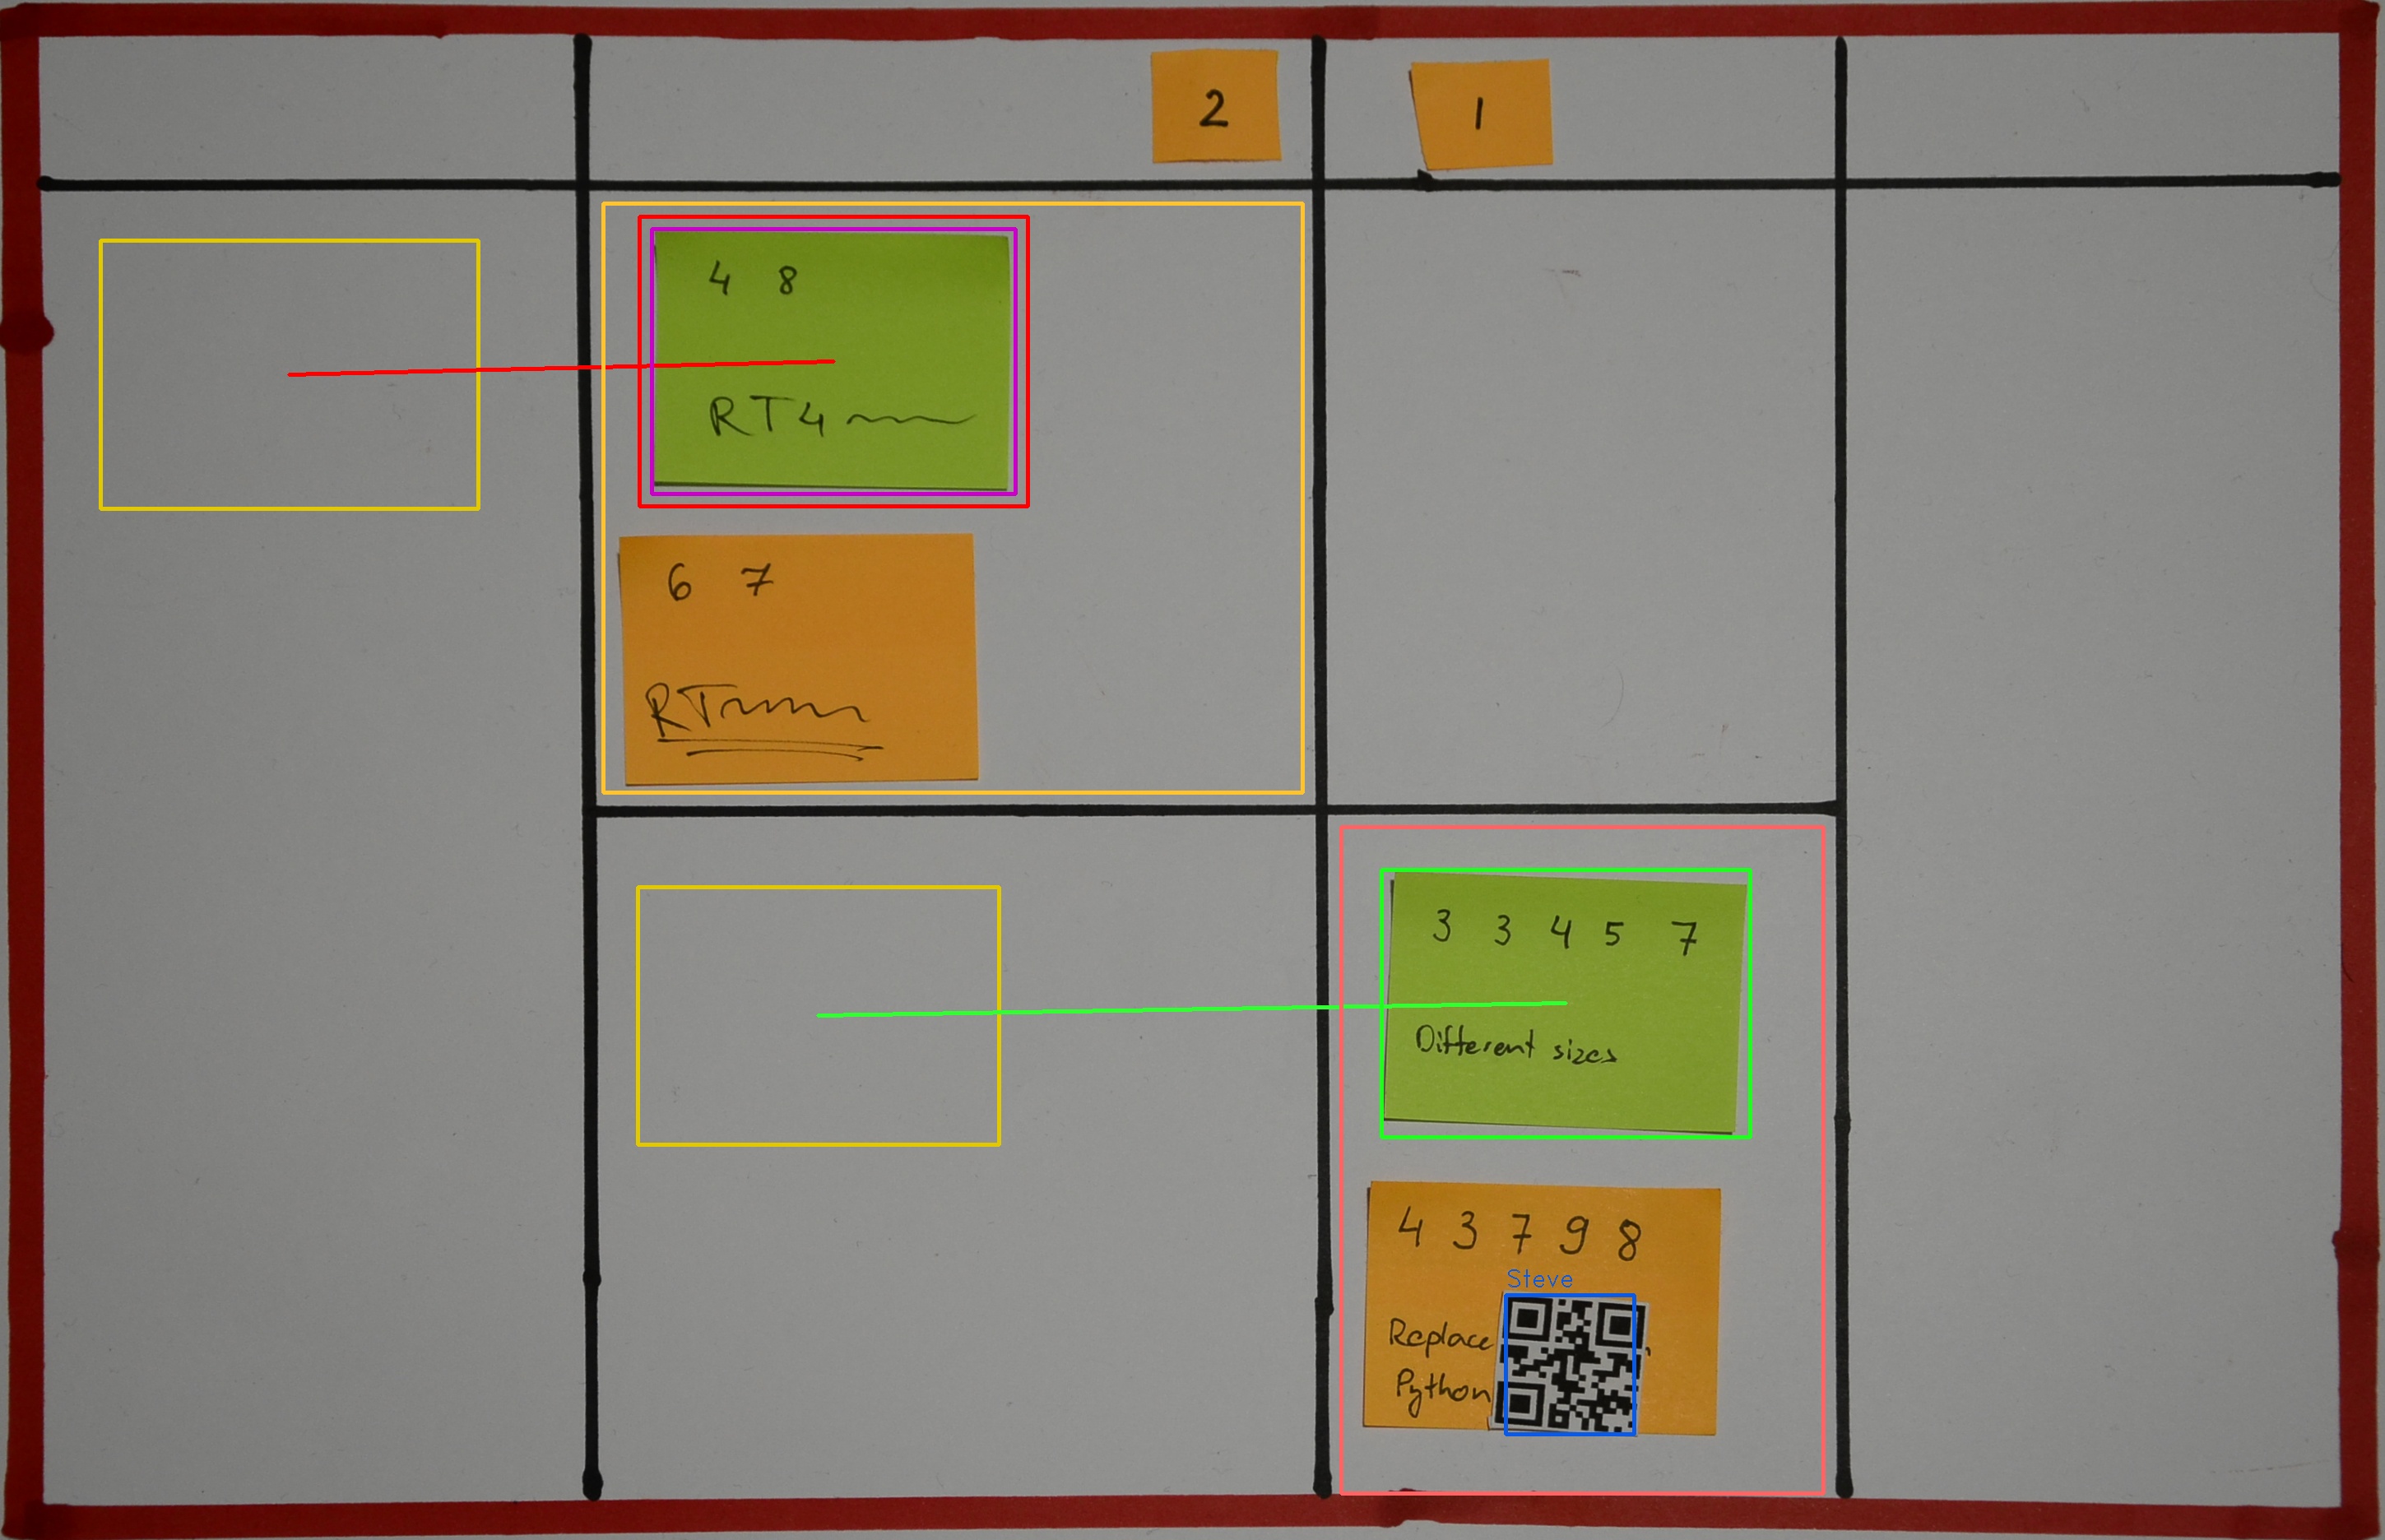 2
1
4 8
RT4
6 7
RT
3 3 4 5 7
Different sizes
4 3 7 9 8
Steve
Replace
Python